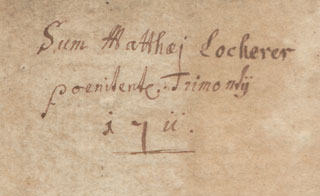 Sum Matthæj Locherer
poenitent. Trimontij
i 7 ii.